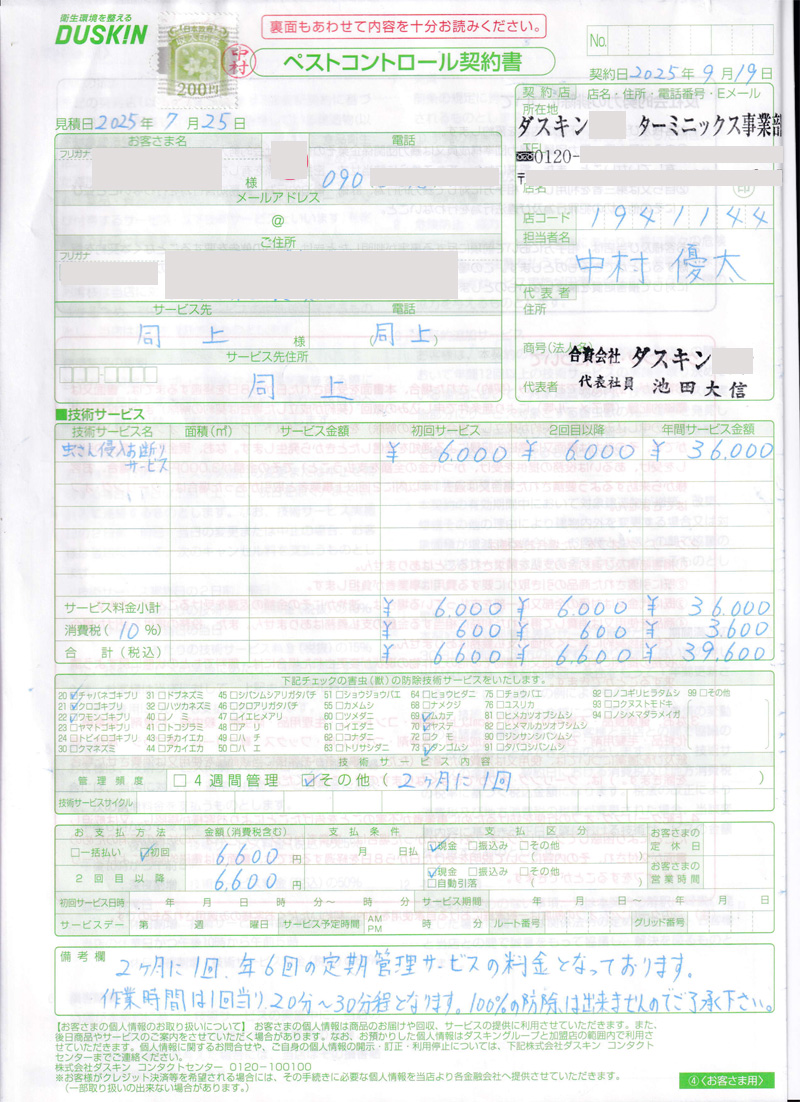 衛生環境を整える
DUSKIN
日本政府
200円
中村
裏面もあわせて内容を十分お読みください。
No.
ペストコントロール契約書
契約日 2025年 9月 19日
見積日 2025年 7月 25日
お客さま名
電話
フリガナ
様
090
メールアドレス
@
ご住所
フリガナ
サービス先
電話
同 上 様
(同 上)
サービス先住所
同 上
契約店
店名・住所・電話番号・Eメール
所在地
ダスキン ターミニックス事業部
TEL
0120-
〒
店名
印
店コード 1941144
担当者名
中村 優太
代表者
住所
商号(法人名)
合資会社 ダスキン
代表者 代表社員 池田大信
■技術サービス
技術サービス名 面積(㎡) サービス金額 初回サービス 2回目以降 年間サービス金額
虫さん侵入お断りサービス ¥ 6.000 ¥ 6.000 ¥ 36.000
サービス料金小計 ¥ 6.000 ¥ 6.000 ¥ 36.000
消費税(10%) ¥ 600 ¥ 600 ¥ 3.600
合計(税込) ¥ 6.600 ¥ 6.600 ¥ 39,600
下記チェックの害虫(獣)の防除技術サービスをいたします。
20☑チャバネゴキブリ 31□ドブネズミ 45□シバンムシアリガタバチ 51□ショウジョウバエ 64□ヒョウヒダニ 75□チョウバエ 92□ノコギリヒラタムシ 99□その他
21☑クロゴキブリ 32□ハツカネズミ 46□クロアリガタバチ 55□カメムシ 68□ナメクジ 76□ユスリカ 93□コクヌストモドキ
22☑ワモンゴキブリ 40□ノミ 47□イエヒメアリ 60□ツメダニ 69☑ムカデ 81□ヒメカツオブシムシ 94□ノシメマダラメイガ
23□ヤマトゴキブリ 41□トコジラミ 48□アリ 61□イエダニ 70☑ヤスデ 82□ヒメマルカツオブシムシ
24□トビイロゴキブリ 43□チカイエカ 49□カ 62□コナダニ 72□クモ 90□ジンサンシバンムシ
30□クマネズミ 44□アカイエカ 50□ハエ 63□トリサシダニ 73☑ダンゴムシ 91□タバコシバンムシ
技術サービス内容
管理頻度 □4週間管理 ☑その他(2ヶ月に1回)
技術サービスサイクル
お支払方法 金額(消費税含む) 支払条件 支払区分 お客さまの定休日
□一括払い ☑初回 6,600円 月 日払 ☑現金 □振込み □その他( )
2回目以降 6,600円 ☑現金 □振込み □その他( ) お客さまの営業時間
□自動引落
初回サービス日時 年 月 日 時 分～ 時 分 サービス期間 年 月 日～ 年 月 日
サービスデー 第 週 曜日 サービス予定時間 AM PM 時 分 ルート番号 グリッド番号
備考欄
2ヶ月に1回、年6回の定期管理サービスの料金となっております。
作業時間は1回当り、20分～30分程となります。100%の防除は出来ませんのでご了承下さい。
【お客さまの個人情報のお取り扱いについて】 お客さまの個人情報は商品のお届けや回収、サービスの提供に利用させていただきます。また、
後日商品やサービスのご案内をさせていただく場合があります。なお、お預かりした個人情報はダスキングループと加盟店の範囲内で利用さ
せていただきます。個人情報に関するお問合せや、ご自身の個人情報の開示・訂正・利用停止については、下記株式会社ダスキン コンタクト
センターまでご連絡ください。
株式会社ダスキン コンタクトセンター 0120-100100
※お客様がクレジット決済等を希望される場合には、その手続きに必要な個人情報を当店より各金融会社へ提供させていただきます。
(一部取り扱いの出来ない場合があります。)
④〈お客さま用〉